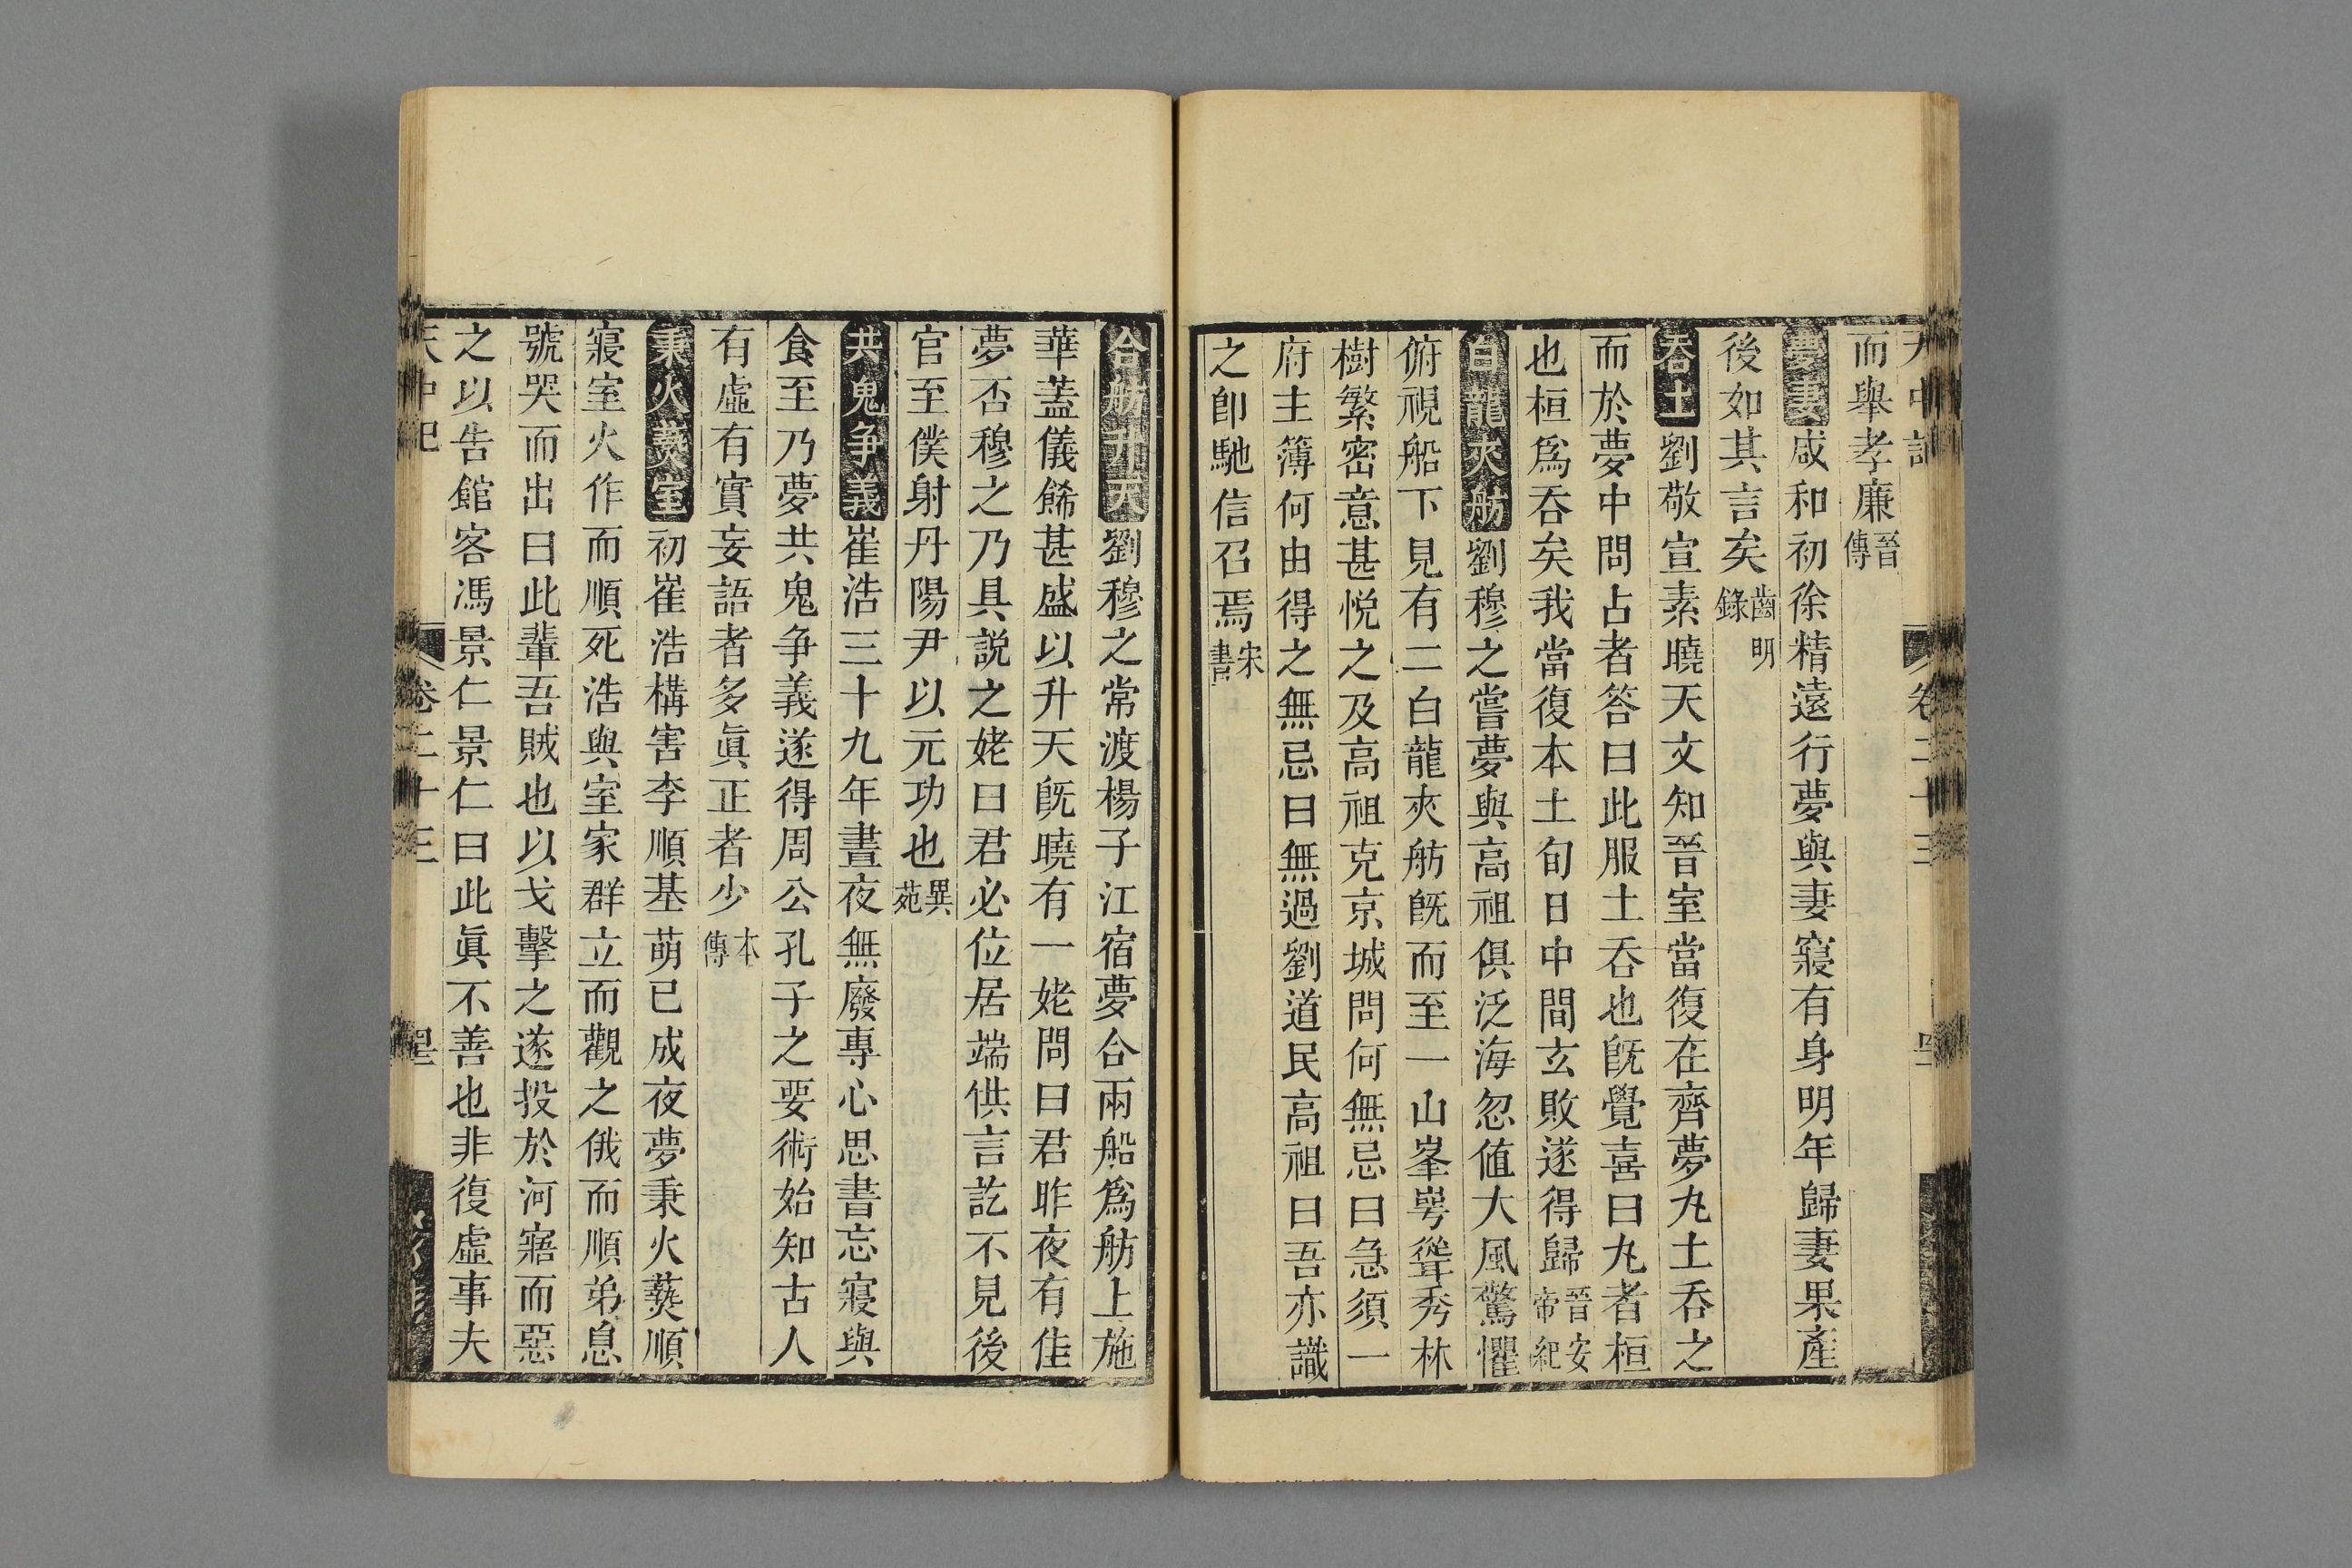 而舉孝廉晉傳
夢妻咸和初徐精遠行夢與妻寢有身明年歸妻果產
後如其言矣幽明錄
吞土劉敬宣素曉天文知晉室當復在齊夢丸土吞之
而於夢中問占者答曰此服土吞也旣覺喜曰丸者桓
也桓爲吞矣我當復本土旬日中間玄敗遂得歸晉安帝紀
白龍夾舫劉穆之嘗夢與高祖俱泛海忽値大風驚懼
俯視船下見有二白龍夾舫旣而至一山峯崿聳秀林
樹繁密意甚悅之及高祖克京城問何無忌曰急須一
府主簿何由得之無忌曰無過劉道民高祖曰吾亦識
之卽馳信召焉宋書
合舫升天劉穆之常渡楊子江宿夢合兩船爲舫上施
華蓋儀餙甚盛以升天旣曉有一姥問曰君昨夜有佳
夢否穆之乃具説之姥曰君必位居端供言訖不見後
官至僕射丹陽尹以元功也異苑
共鬼争義崔浩三十九年晝夜無廢專心思書忘寢與
食至乃夢共鬼争義遂得周公孔子之要術始知古人
有虛有實妄語者多眞正者少本傳
秉火爇室初崔浩構害李順基萌已成夜夢秉火爇順
寢室火作而順死浩與室家群立而觀之俄而順弟息
號哭而出曰此輩吾賊也以戈擊之遂投於河寤而惡
之以告館客馮景仁景仁曰此眞不善也非復虛事夫
天中記 卷二十三